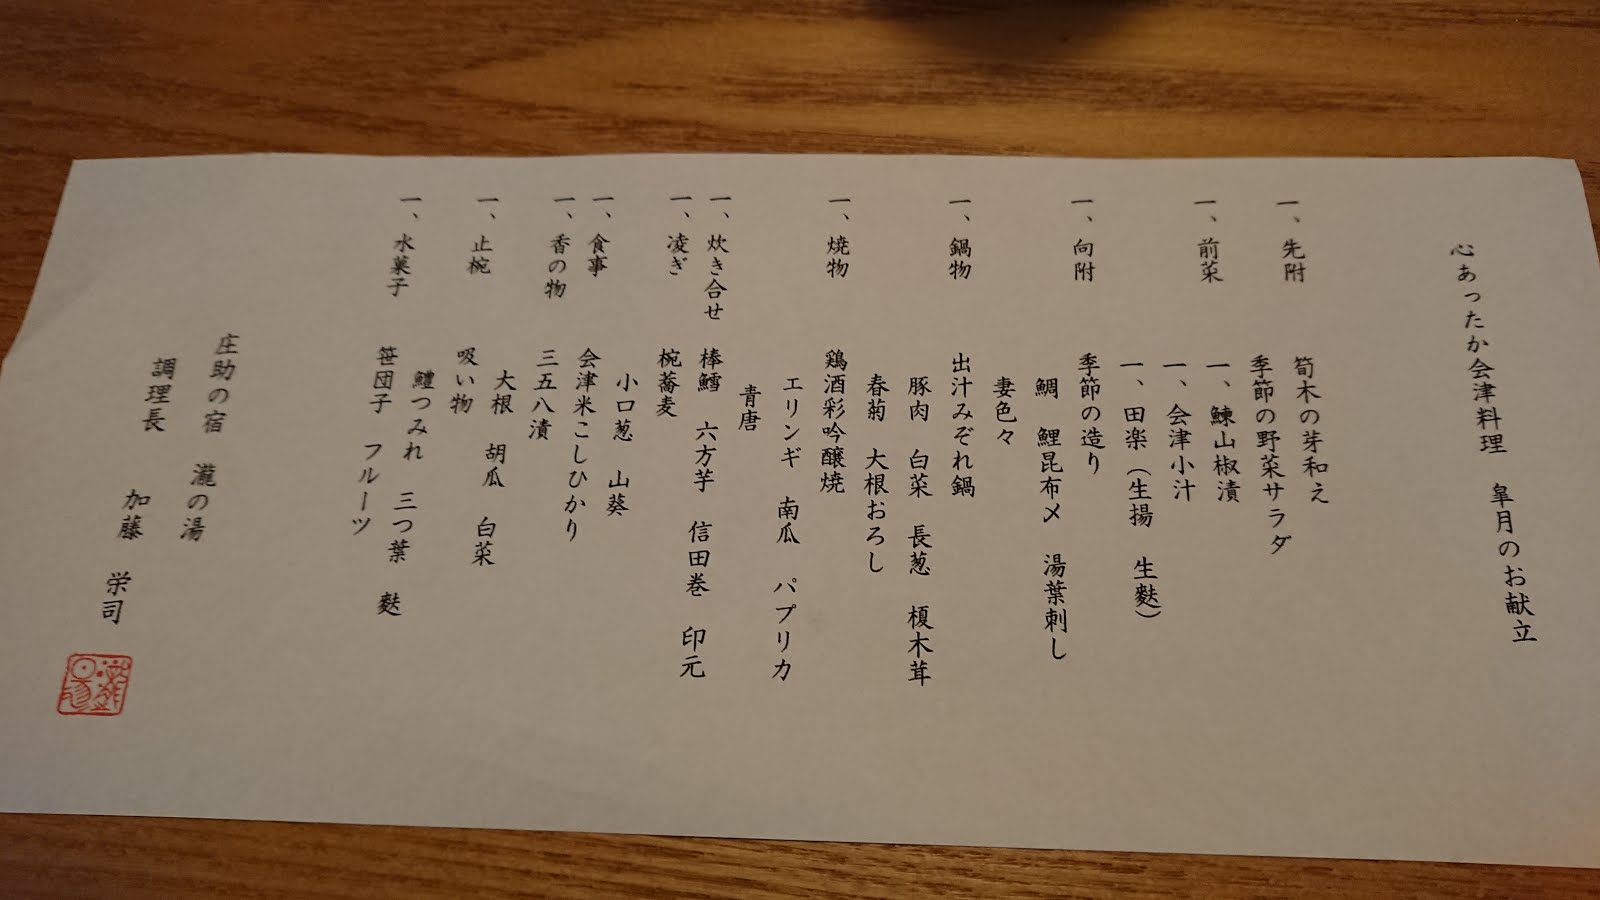 心あったか会津料理 皐月のお献立
一、先附 筍木の芽和え
季節の野菜サラダ
一、前菜 一、鰊山椒漬
一、会津小汁
一、田楽(生揚 生麩)
一、向附 季節の造り
鯛 鯉昆布〆 湯葉刺し
妻色々
一、鍋物 出汁みぞれ鍋
豚肉 白菜 長葱 榎木茸
春菊 大根おろし
一、焼物 鶏酒彩吟醸焼
エリンギ 南瓜 パプリカ
青唐
一、炊き合せ 棒鱈 六方芋 信田巻 印元
一、凌ぎ 椀蕎麦
小口葱 山葵
一、食事 会津米こしひかり
一、香の物 三五八漬
大根 胡瓜 白菜
一、止椀 吸い物
鱧つみれ 三つ葉 麩
一、水菓子 笹団子 フルーツ
庄助の宿 瀧の湯
調理長 加藤 栄司